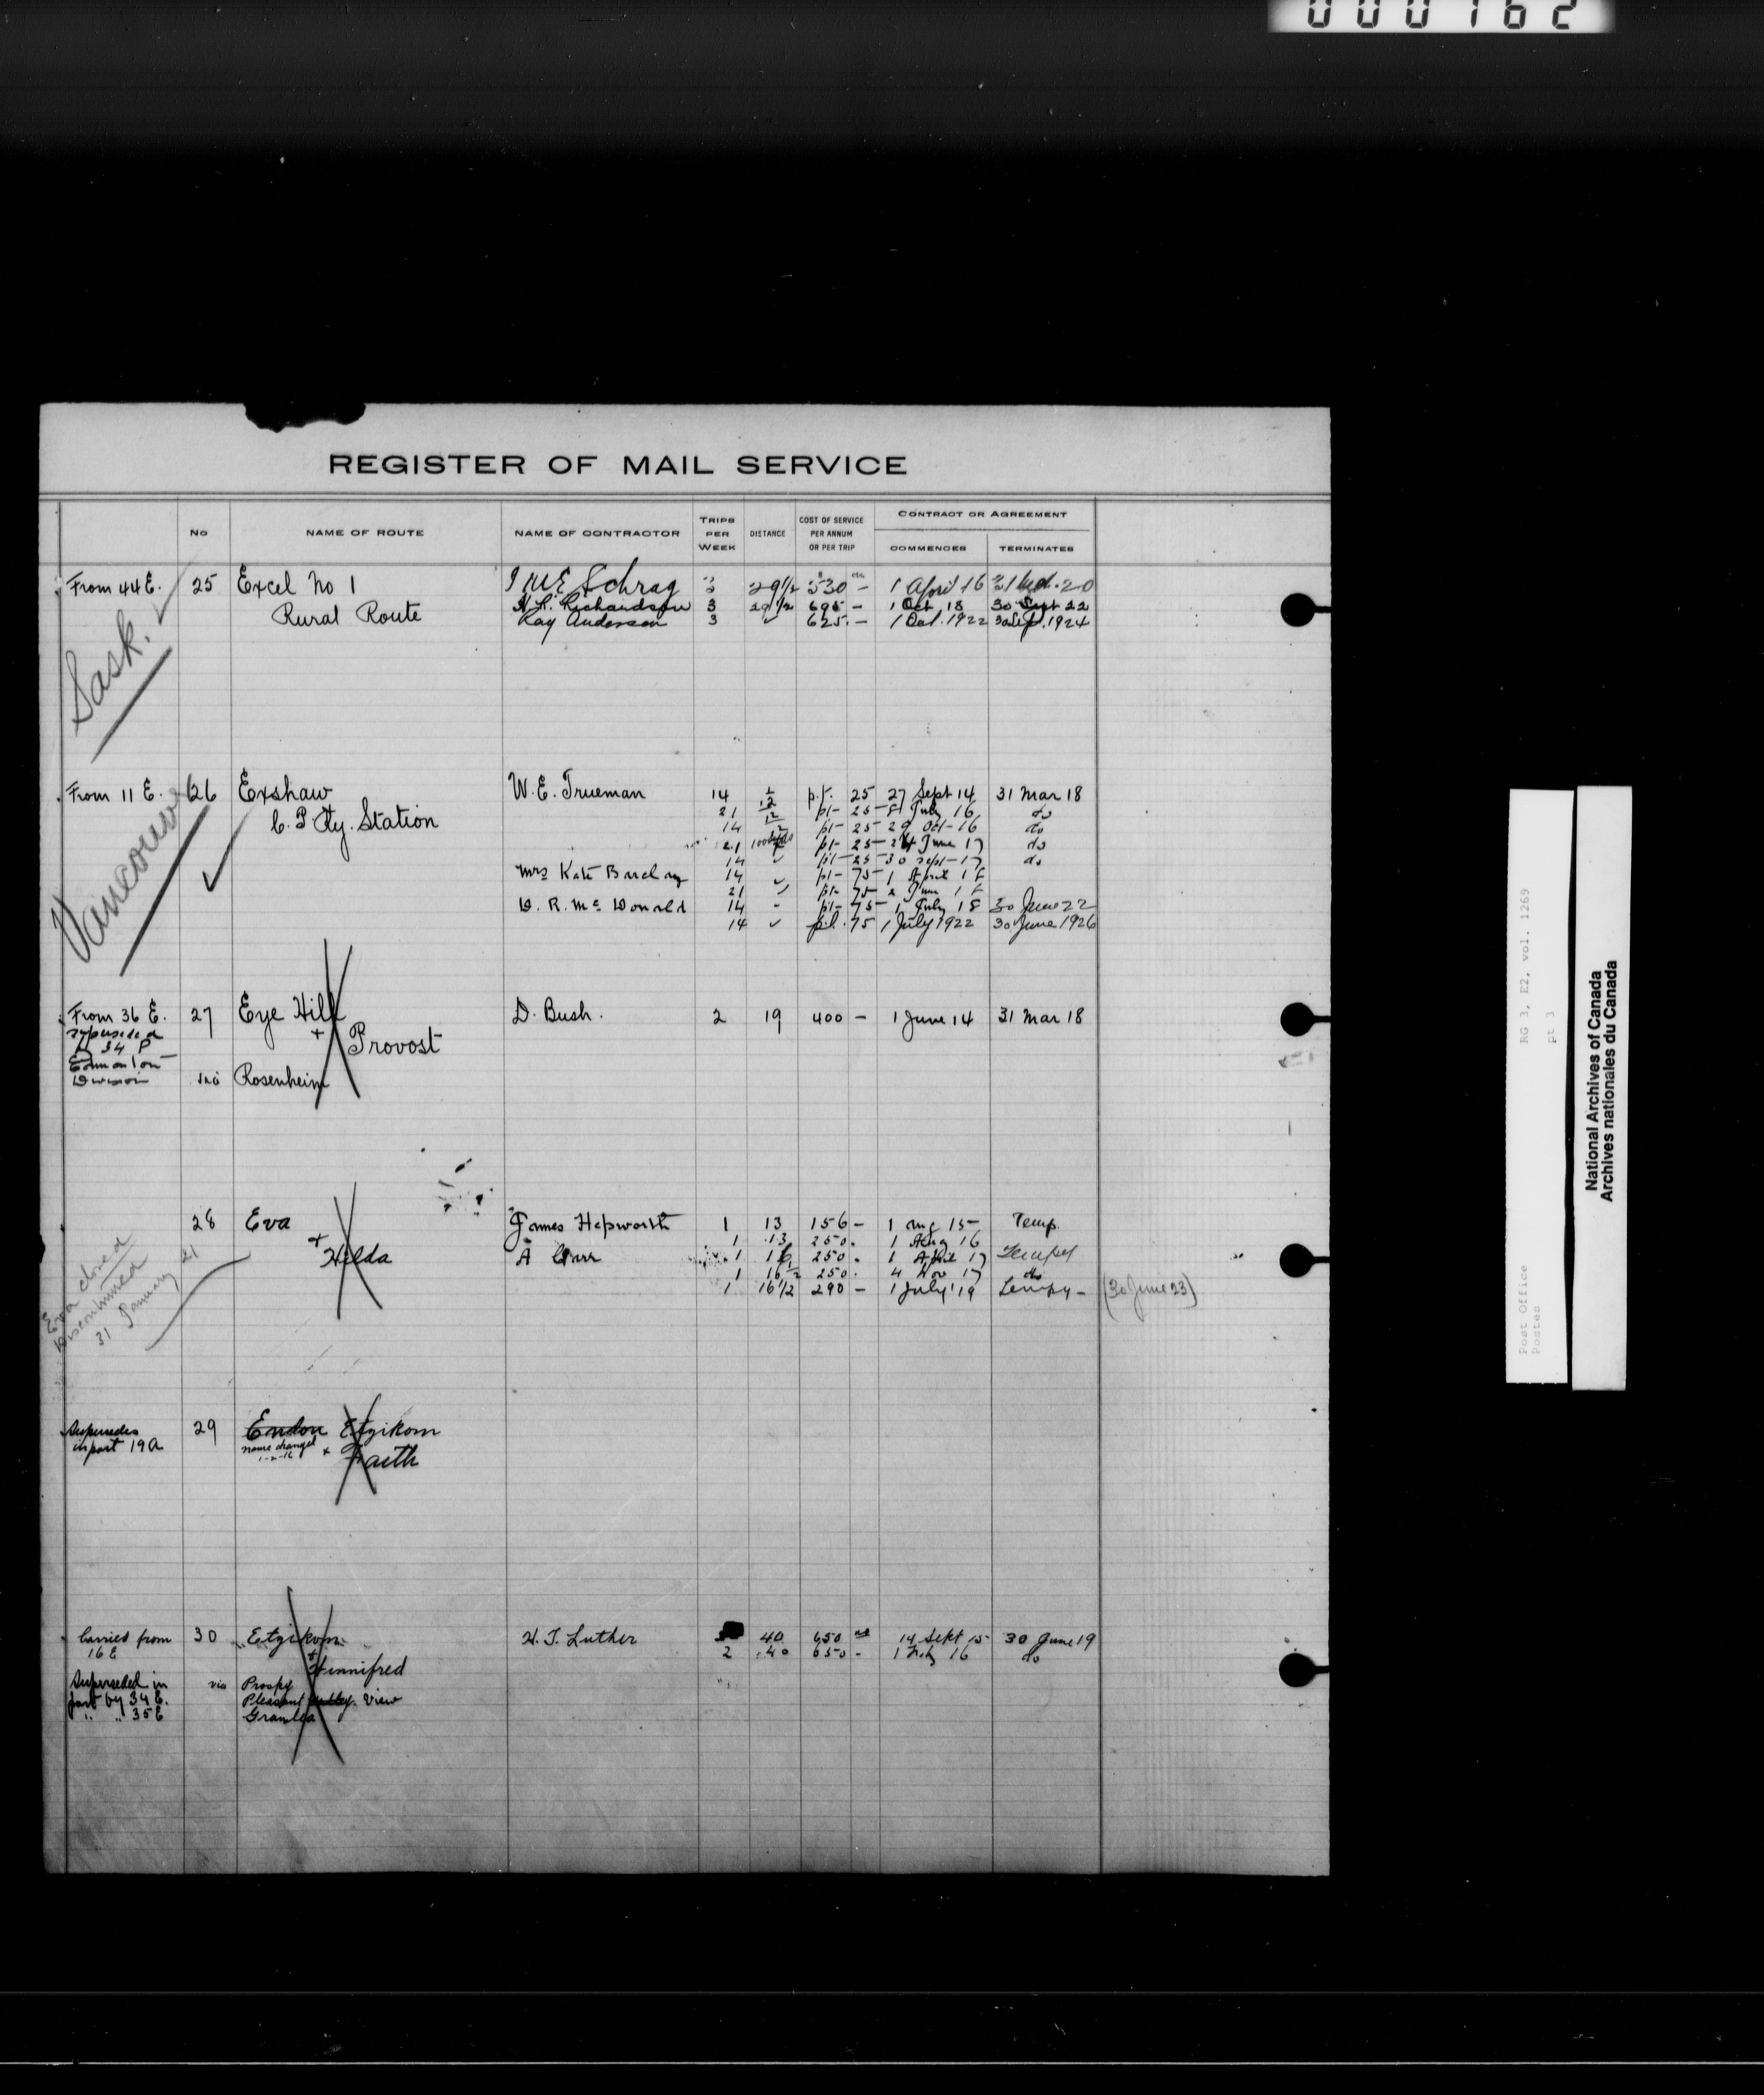 000162
REGISTER OF MAIL SERVICE
No NAME OF ROUTE NAME OF CONTRACTOR TRIPS PER WEEK DISTANCE COST OF SERVICE PER ANNUM OR PER TRIP CONTRACT OR AGREEMENT COMMENCES TERMINATES
From 44 E. 25 Excel No 1 Schrag 29 1/2 530 – 1 April 16 20
Rural Route H. L. Richardson 3 29 1/2 695 – 1 Oct 18 30 Sept 22
Ray Anderson 3 ✓ 625. – 1 Oct. 1922 30 Sept. 1924
Sask.
From 11 E. 26 Exshaw W. E. Trueman 14 1/2 p.t. 25 27 Sept 14 31 Mar 18
C. P. Ry. Station 21 1/2 pt– 25 – 8 July 16 do
14 1/2 pt– 25 – 29 Oct – 16 do
21 pt– 25 – 24 June 17 do
14 ✓ pt– 25 – 30 Sept – 17 do
Mrs Kate Barclay 14 ✓ pt– 75 – 1 April 18
21 ✓ pt– 75 2 June 18
D. R. McDonald 14 - pt– 75 – 1 July 18 30 June 22
14 ✓ pt. 75 1 July 1922 30 June 1926
Vancouver
From 36 E. 27 Eye Hill D. Bush. 2 19 400 – 1 June 14 31 Mar 18
superseded + Provost
by 34 P
Edmonton
Division via Rosenheim
28 Eva James Hepworth 1 13 156 – 1 15 – Temp.
+ 1 13 250. 1 Aug 16
Hilda A Carr 1 16 250. 1 April 17 Tempy
1 16 1/2 250. 4 Nov 17 do
1 16 1/2 290 – 1 July '19 Tempy – (30 June 23)
Eva closed
Discontinued
31 January 21
Supersedes 29 Endon Etzikom
in part 19 A name changed
1-2-16 + Faith
Carried from 30 Etzikom H. T. Luther 40 650 14 Sept 15 30 June 19
16 E + 2 40 650 - 1 16 do
Winnifred
Superseded in via Prospy
part by 34 E. Pleasant Valley View
" " 35 E Granlea
RG 3, E2, vol. 1269
pt 3
Post Office
Postes
National Archives of Canada
Archives nationales du Canada